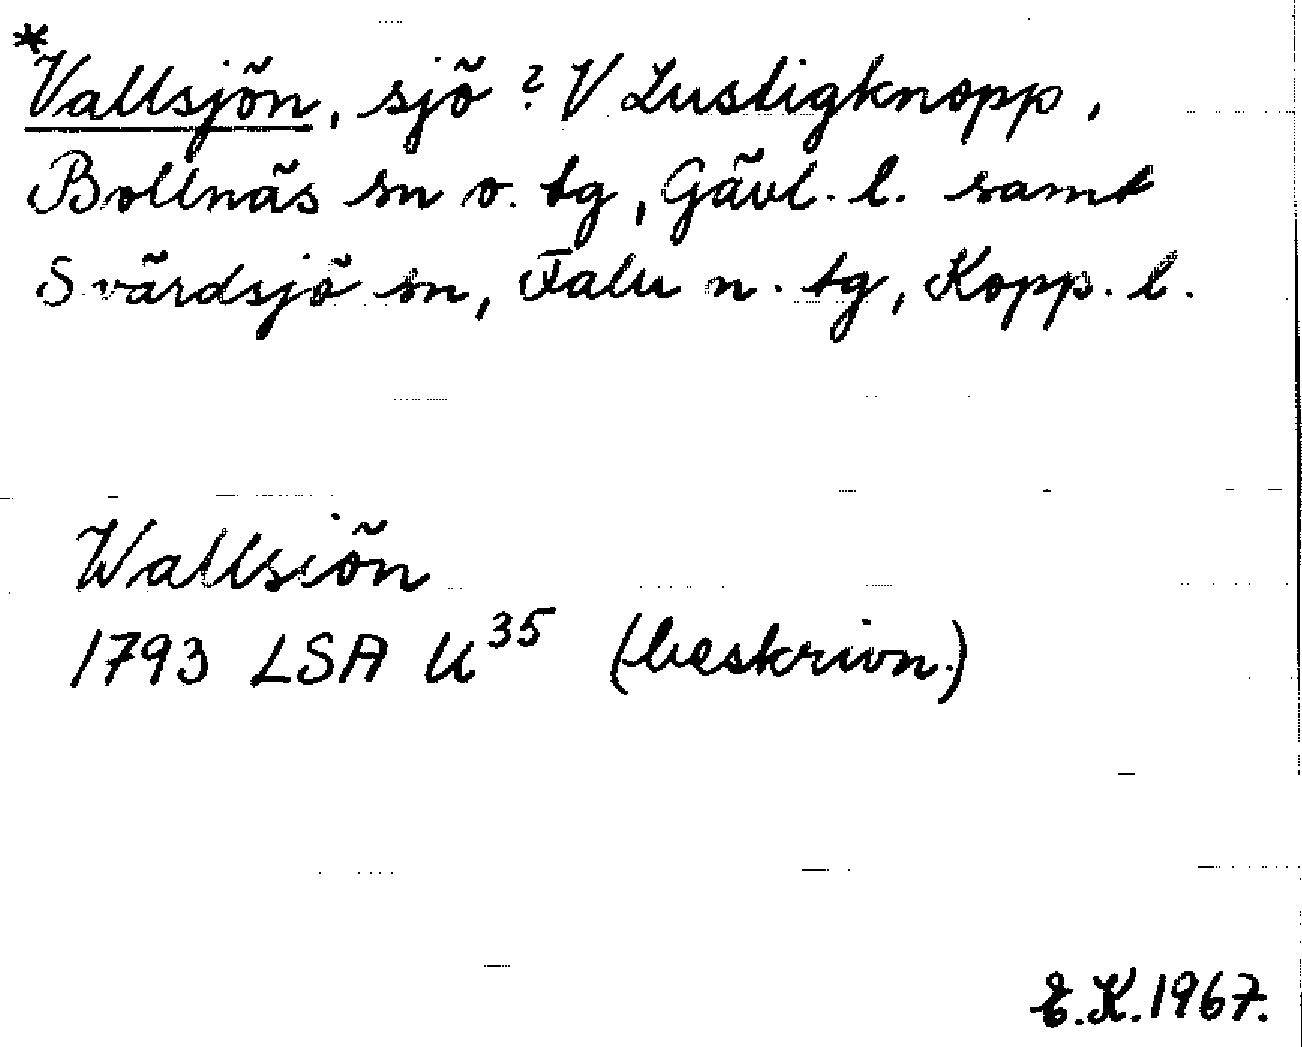 *Vallsjön, sjö ? V Lustigknopp,
Bollnäs sn o. tg, Gävl. l. samt
Svärdsjö sn, Falu n. tg, Kopp. l.
Wallsiön
1793 LSA U³⁵ (beskrivn.)
E.K.1967.